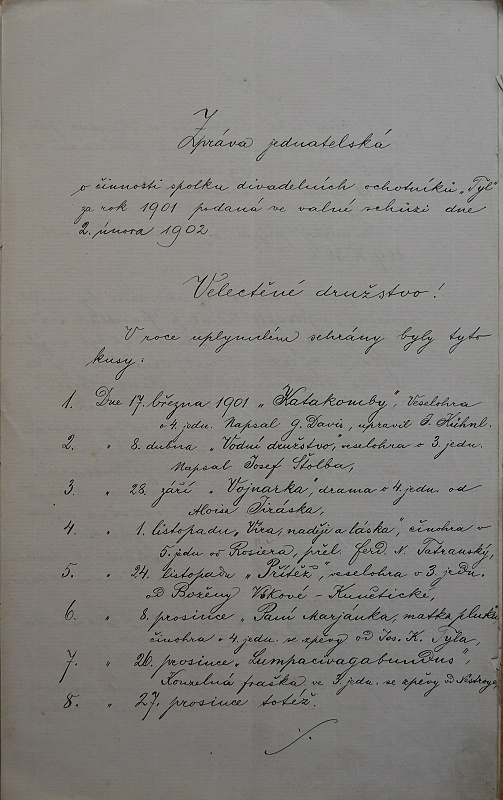 Zpráva jednatelská
o činnosti spolku divadelních ochotníků „Tyl"
za rok 1901 podaná ve valné schůzi dne
2. února 1902
Velectěné družstvo!
V roce uplynulém sehrány byly tyto
kusy:
1. Dne 17. března 1901 „Katakomby", Veselohra
o 4 jedn. Napsal G. Davis, upravil J. Kühnl.
2. " 8. dubna „Vodní družstvo", veselohra o 3 jedn.
Napsal Josef Štolba,
3. " 28. září „Vojnarka", drama o 4 jedn. od
Aloise Jiráska,
4. " 1. listopadu „Víra, naděje a láska", činohra v
5 jedn. od Rosiera, přel. Ferd. N. Tatranský,
5. " 24. listopadu „Přítěž", veselohra o 3 jedn.
od Boženy Vikové-Kunětické,
6. " 8. prosince „Paní Marjánka, matka pluku"
činohra o 4 jedn. se zpěvy od Jos. K. Tyla,
7. " 26. prosince „Lumpacivagabundus",
Kouzelná fraška ve 3 jedn. se zpěvy od Nestroye
8. " 27. prosince totéž.